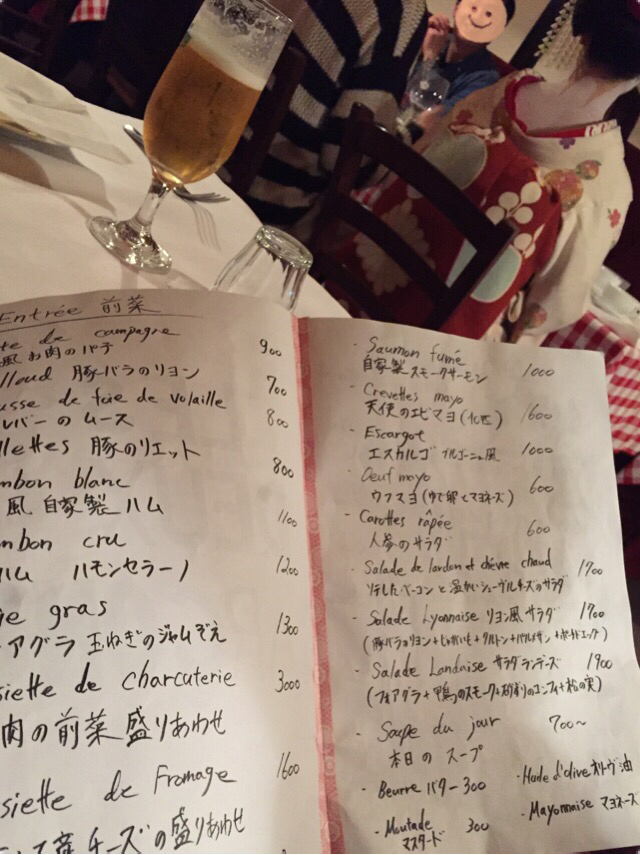 Entrée 前菜
de campagne
風お肉のパテ 900
lloud 豚バラのリヨン 700
usse de foie de volaille
レバーのムース 800
llettes 豚のリエット 800
mbon blanc
風 自家製ハム 1100
mbon cru
ハム ハモンセラーノ 1200
gras
アグラ 玉ねぎのジャムぞえ 1300
siette de charcuterie 3000
肉の前菜盛りあわせ
siette de Fromage 1600
産チーズの盛りあわせ
・Saumon fumé
自家製スモークサーモン 1000
・Crevettes mayo
天使のエビマヨ 1600
・Escargot
エスカルゴ ブルゴーニュ風 1000
・Oeuf mayo
ウフマヨ(ゆで卵とマヨネーズ) 600
・Carottes râpée
人参のサラダ 600
・Salade de lardon et chèvre chaud 1700
ソテしたベーコンと温かいシェーヴルチーズのサラダ
・Salade Lyonnaise リヨン風サラダ 1700
(豚バラのリヨン+じゃがいも+クルトン+パルメザン+ポーチドエッグ)
・Salade Landaise サラダランデーズ 1900
(フォアグラ+鴨のスモーク+砂肝のコンフィ+松の実)
・Soupe du jour 700~
本日のスープ
・Beurre バター 300
・Huile d'olive オリーヴ油
・Moutade
マスタード 300
・Mayonnaise マヨネーズ